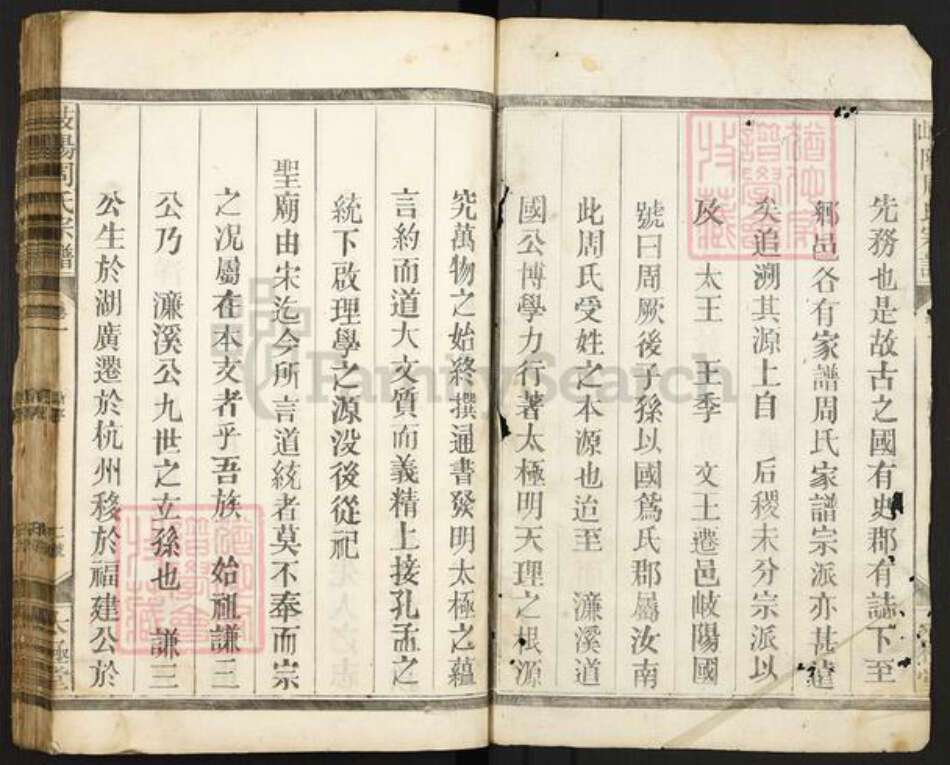 先務也是故古之國有史郡有誌下至
鄉邑各有家譜周氏家譜宗派亦甚遠
矣追溯其源上自 后稷未分宗派以
及 太王 王季 文王遷邑岐陽國
號曰周厥後子孫以國爲氏郡屬汝南
此周氏受姓之本源也迨至 濂溪道
國公博學力行著太極明天理之根源
究萬物之始終撰通書發明太極之蘊
言約而道大文質而義精上接孔孟之
統下啟理學之源没後從祀
聖廟由宋迄今所言道統者莫不奉而宗
之况屬在本支者乎吾族 始祖謙三
公乃 濂溪公九世之玄孫也 謙三
公生於湖廣遷於杭州移於福建公於
岐陽周氏宗譜
太極堂
FamilySearch